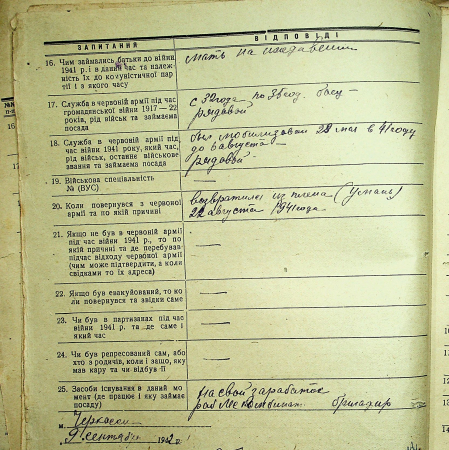 ЗАПИТАННЯ
ВІДПОВІДІ
16. Чим займались батьки до війни
1941 р. і в даний час та належ-
ність їх до комуністичної пар-
тії і з якого часу
мать на иждивении
17. Служба в червоній армії під час
громадянської війни 1917—22
років, рід військ та займаєма
посада
с 32 года по
рядовой
18. Служба в червоній армії під
час війни 1941 року, який час,
рід військ, останнє військове
звання та займаєма посада
был мобилизован 28 мая в 41 году
до 6 августа —
рядовой —
19. Військова спеціальність
№ (ВУС)
—
20. Коли повернувся з червоної
армії та по якій причині
возвратился из плена (Умань)
22 августа 1941 года
21. Якщо не був в червоній армії
під час війни 1941 р., то по
якій причині та де перебував
підчас відходу червоної армії
(чим може підтвердити, а коли
свідками то їх адреса)
—
—
22. Якщо був евакуйований, то ко-
ли повернувся та звідки саме
—
23. Чи був в партизанах під час
війни 1941 р. та де саме і
який час
—
24. Чи був репресований сам, або
хто з родичів, коли і защо, яку
мав кару та чи відбув її
—
25. Засоби існування в даний мо-
мент (де працює і яку займає
посаду)
на свой заработок
бригадир
м. Черкассы
9 сентября 1942 г.